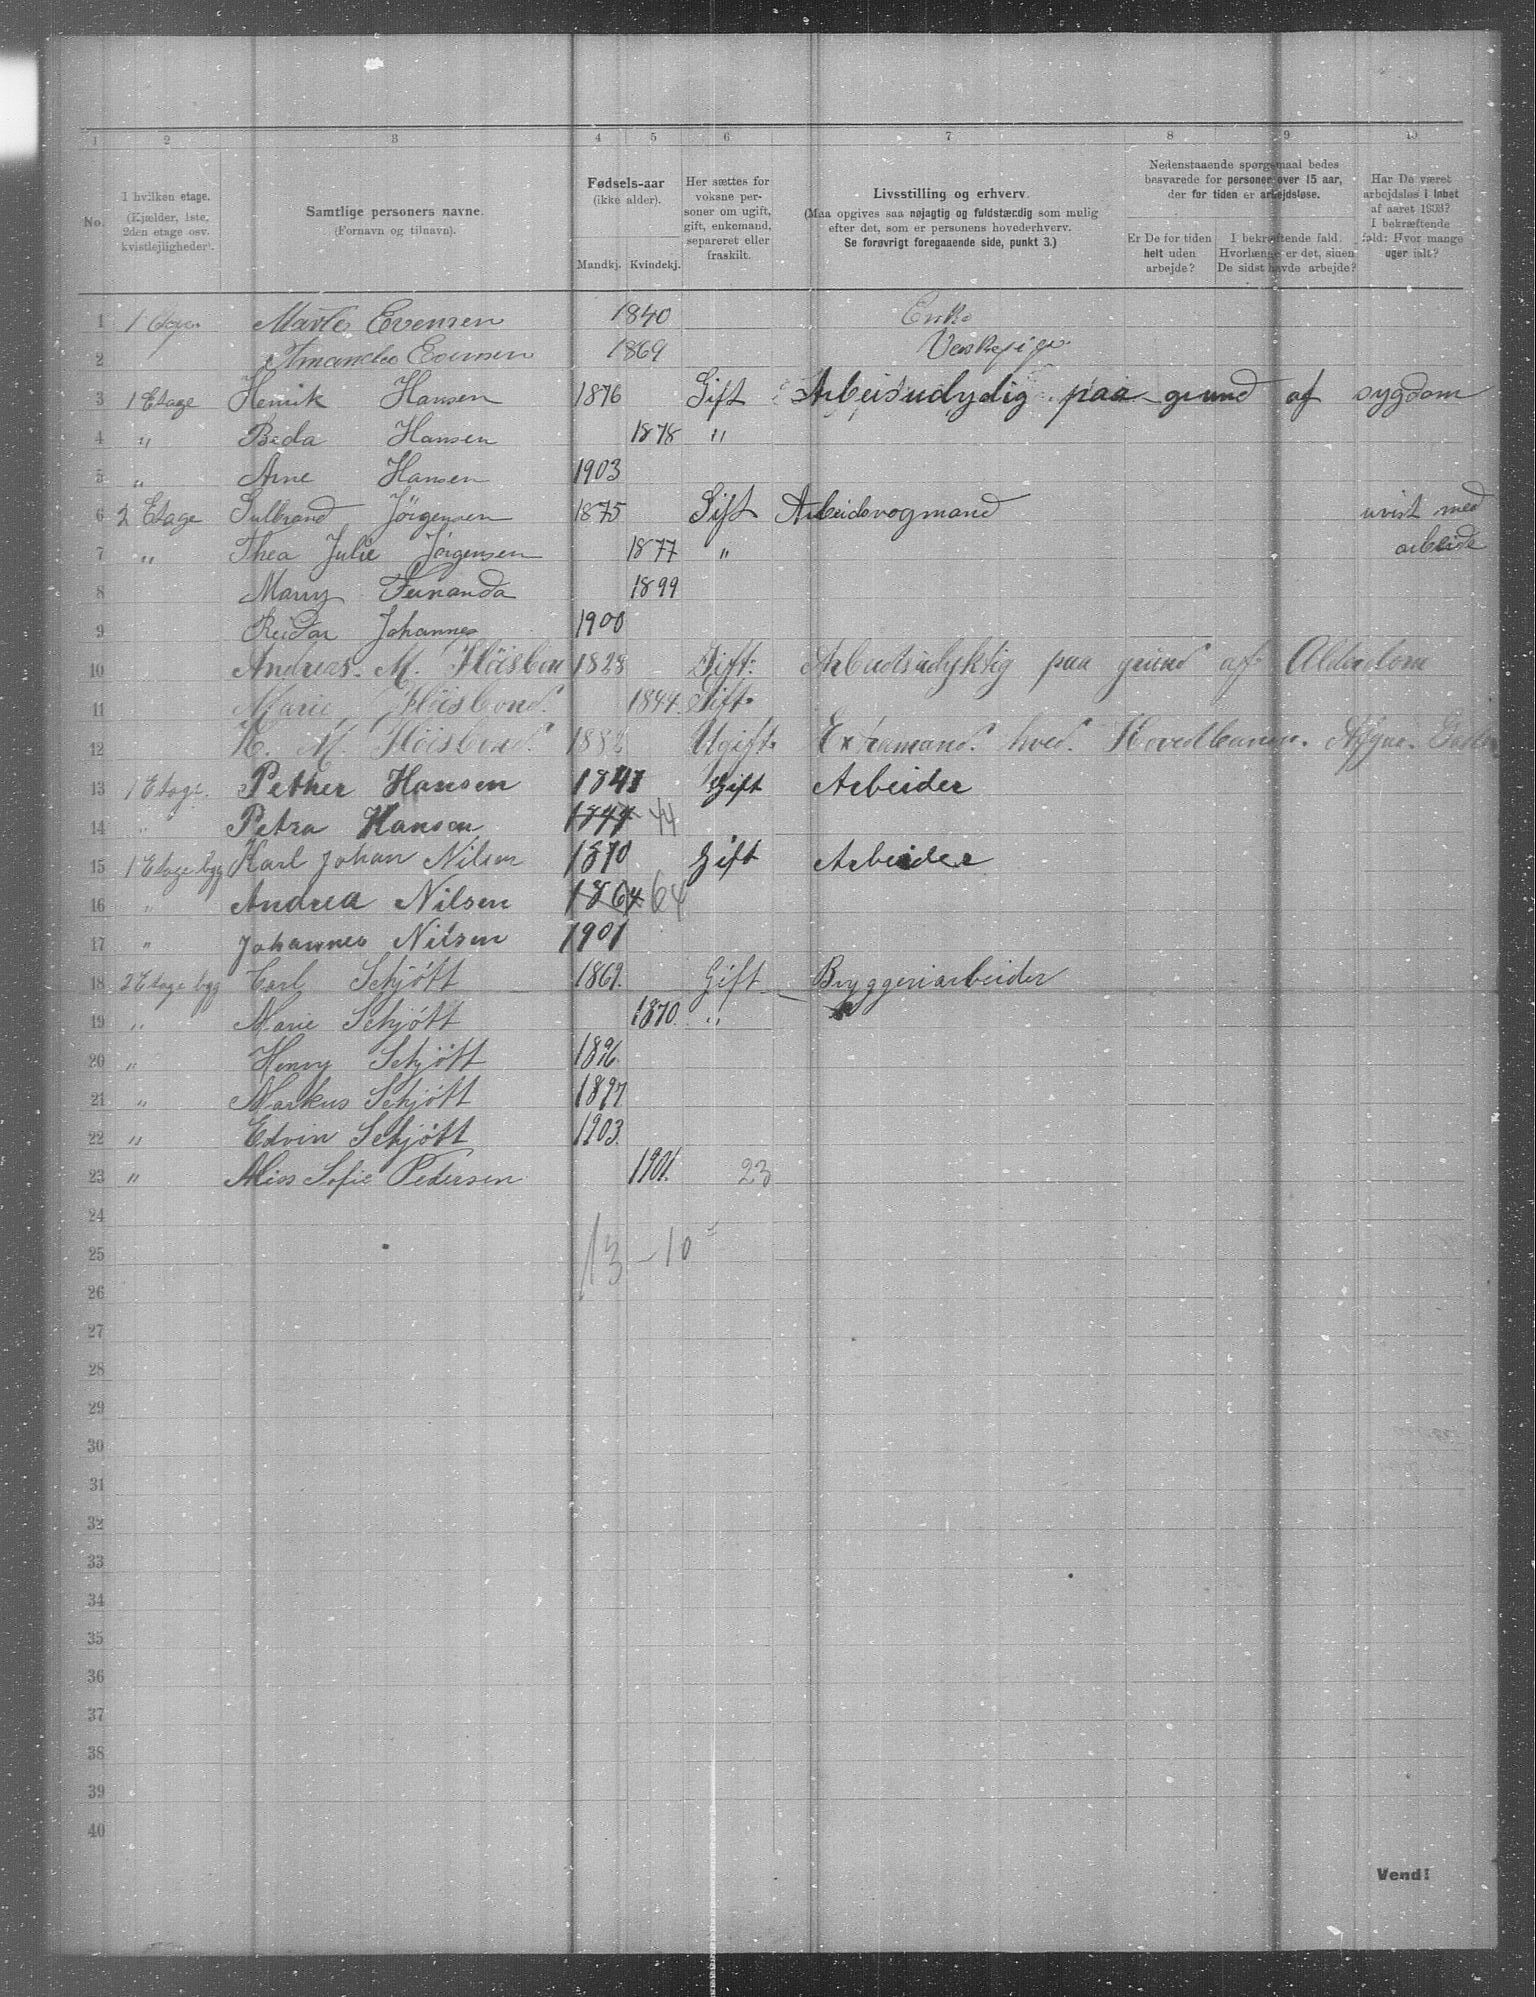 1 2 3 4 5 6 7 8 9 10
No.
I hvilken etage.
(Kjælder, 1ste,
2den etage osv.
kvistlejligheder).
Samtlige personers navne.
(Fornavn og tilnavn).
Fødsels-aar
(ikke alder).
Mandkj. Kvindekj.
Her sættes for
voksne per-
soner om ugift,
gift, enkemand,
separeret eller
fraskilt.
Livsstilling og erhverv.
(Maa opgives saa nøjagtig og fuldstændig som mulig
efter det, som er personens hovederhverv.
Se forøvrigt foregaaende side, punkt 3.)
Nedenstaaende spørgsmaal bedes
besvarede for personer over 15 aar,
der for tiden er arbejdsløse.
Er De for tiden
helt uden
arbejde?
I bekræftende fald.
Hvorlænge er det, siden
De sidst havde arbejde?
Har De været
arbejdsløs i løbet
af aaret 1903?
I bekræftende
fald: Hvor mange
uger ialt?
1 1 Etage Marte Evensen 1840 Enke
2 Amanda Evensen 1869
3 1 Etage Henrik Hansen 1876 Gift Arbeisudydig paa grund af sygdom
4 " Beda Hansen 1878 "
5 " Arne Hansen 1903
6 2 Etage Gulbrand Jörgensen 1875 Gift Arbeidsvogmand uvist med
7 " Thea Julie Jörgensen 1877 " arbeide
8 Marry Fernanda 1899
9 Reidar Johannes 1900
10 Andreas. M. Höisbon 1828 Gift. Arbeidsudyktig paa grund af Alderdom
11 Marie Höisbond. 1844. Gift.
12 K. M. Höisbond. Ugift. Extramand. hved. Hovedbanen.
13 1 Etage. Pether Hansen 1841 Gift Arbeider
14 " Petra Hansen 1844 44
15 1 Etage byg Karl Johan Nilsen 1870 Gift Arbeider
16 " Andrea Nilsen 1864 64
17 " Johannes Nilsen 1901
18 2 Etage byg Carl Schjött 1869. Gift Bryggeriarbeider
19 " Marie Schjött 1870. "
20 " Henry Schjött 1896.
21 " Markus Schjött 1897
22 " Edvin Schjött 1903.
23 " Miss Sofie Pedersen 1901. 23
24
25 13 - 10
26
27
28
29
30
31
32
33
34
35
36
37
38
39
40
Vend!